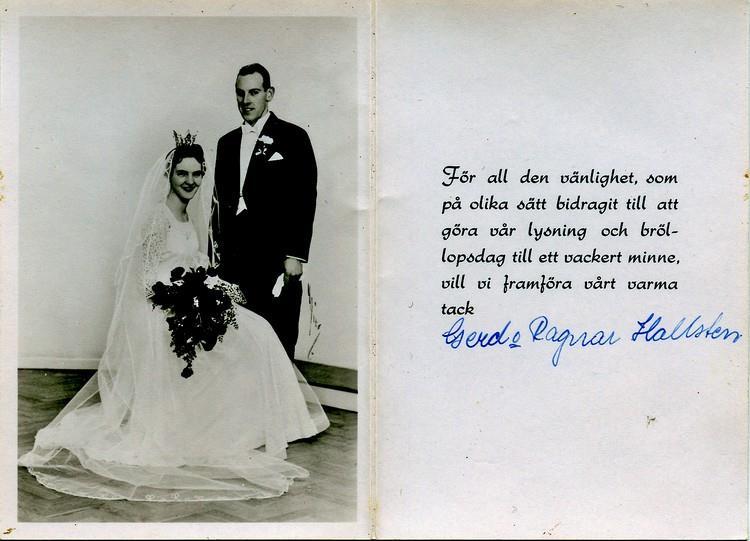 För all den vänlighet, som
på olika sätt bidragit till att
göra vår lysning och bröl-
lopsdag till ett vackert minne,
vill vi framföra vårt varma
tack
Gerd o Ragnar Hallsten